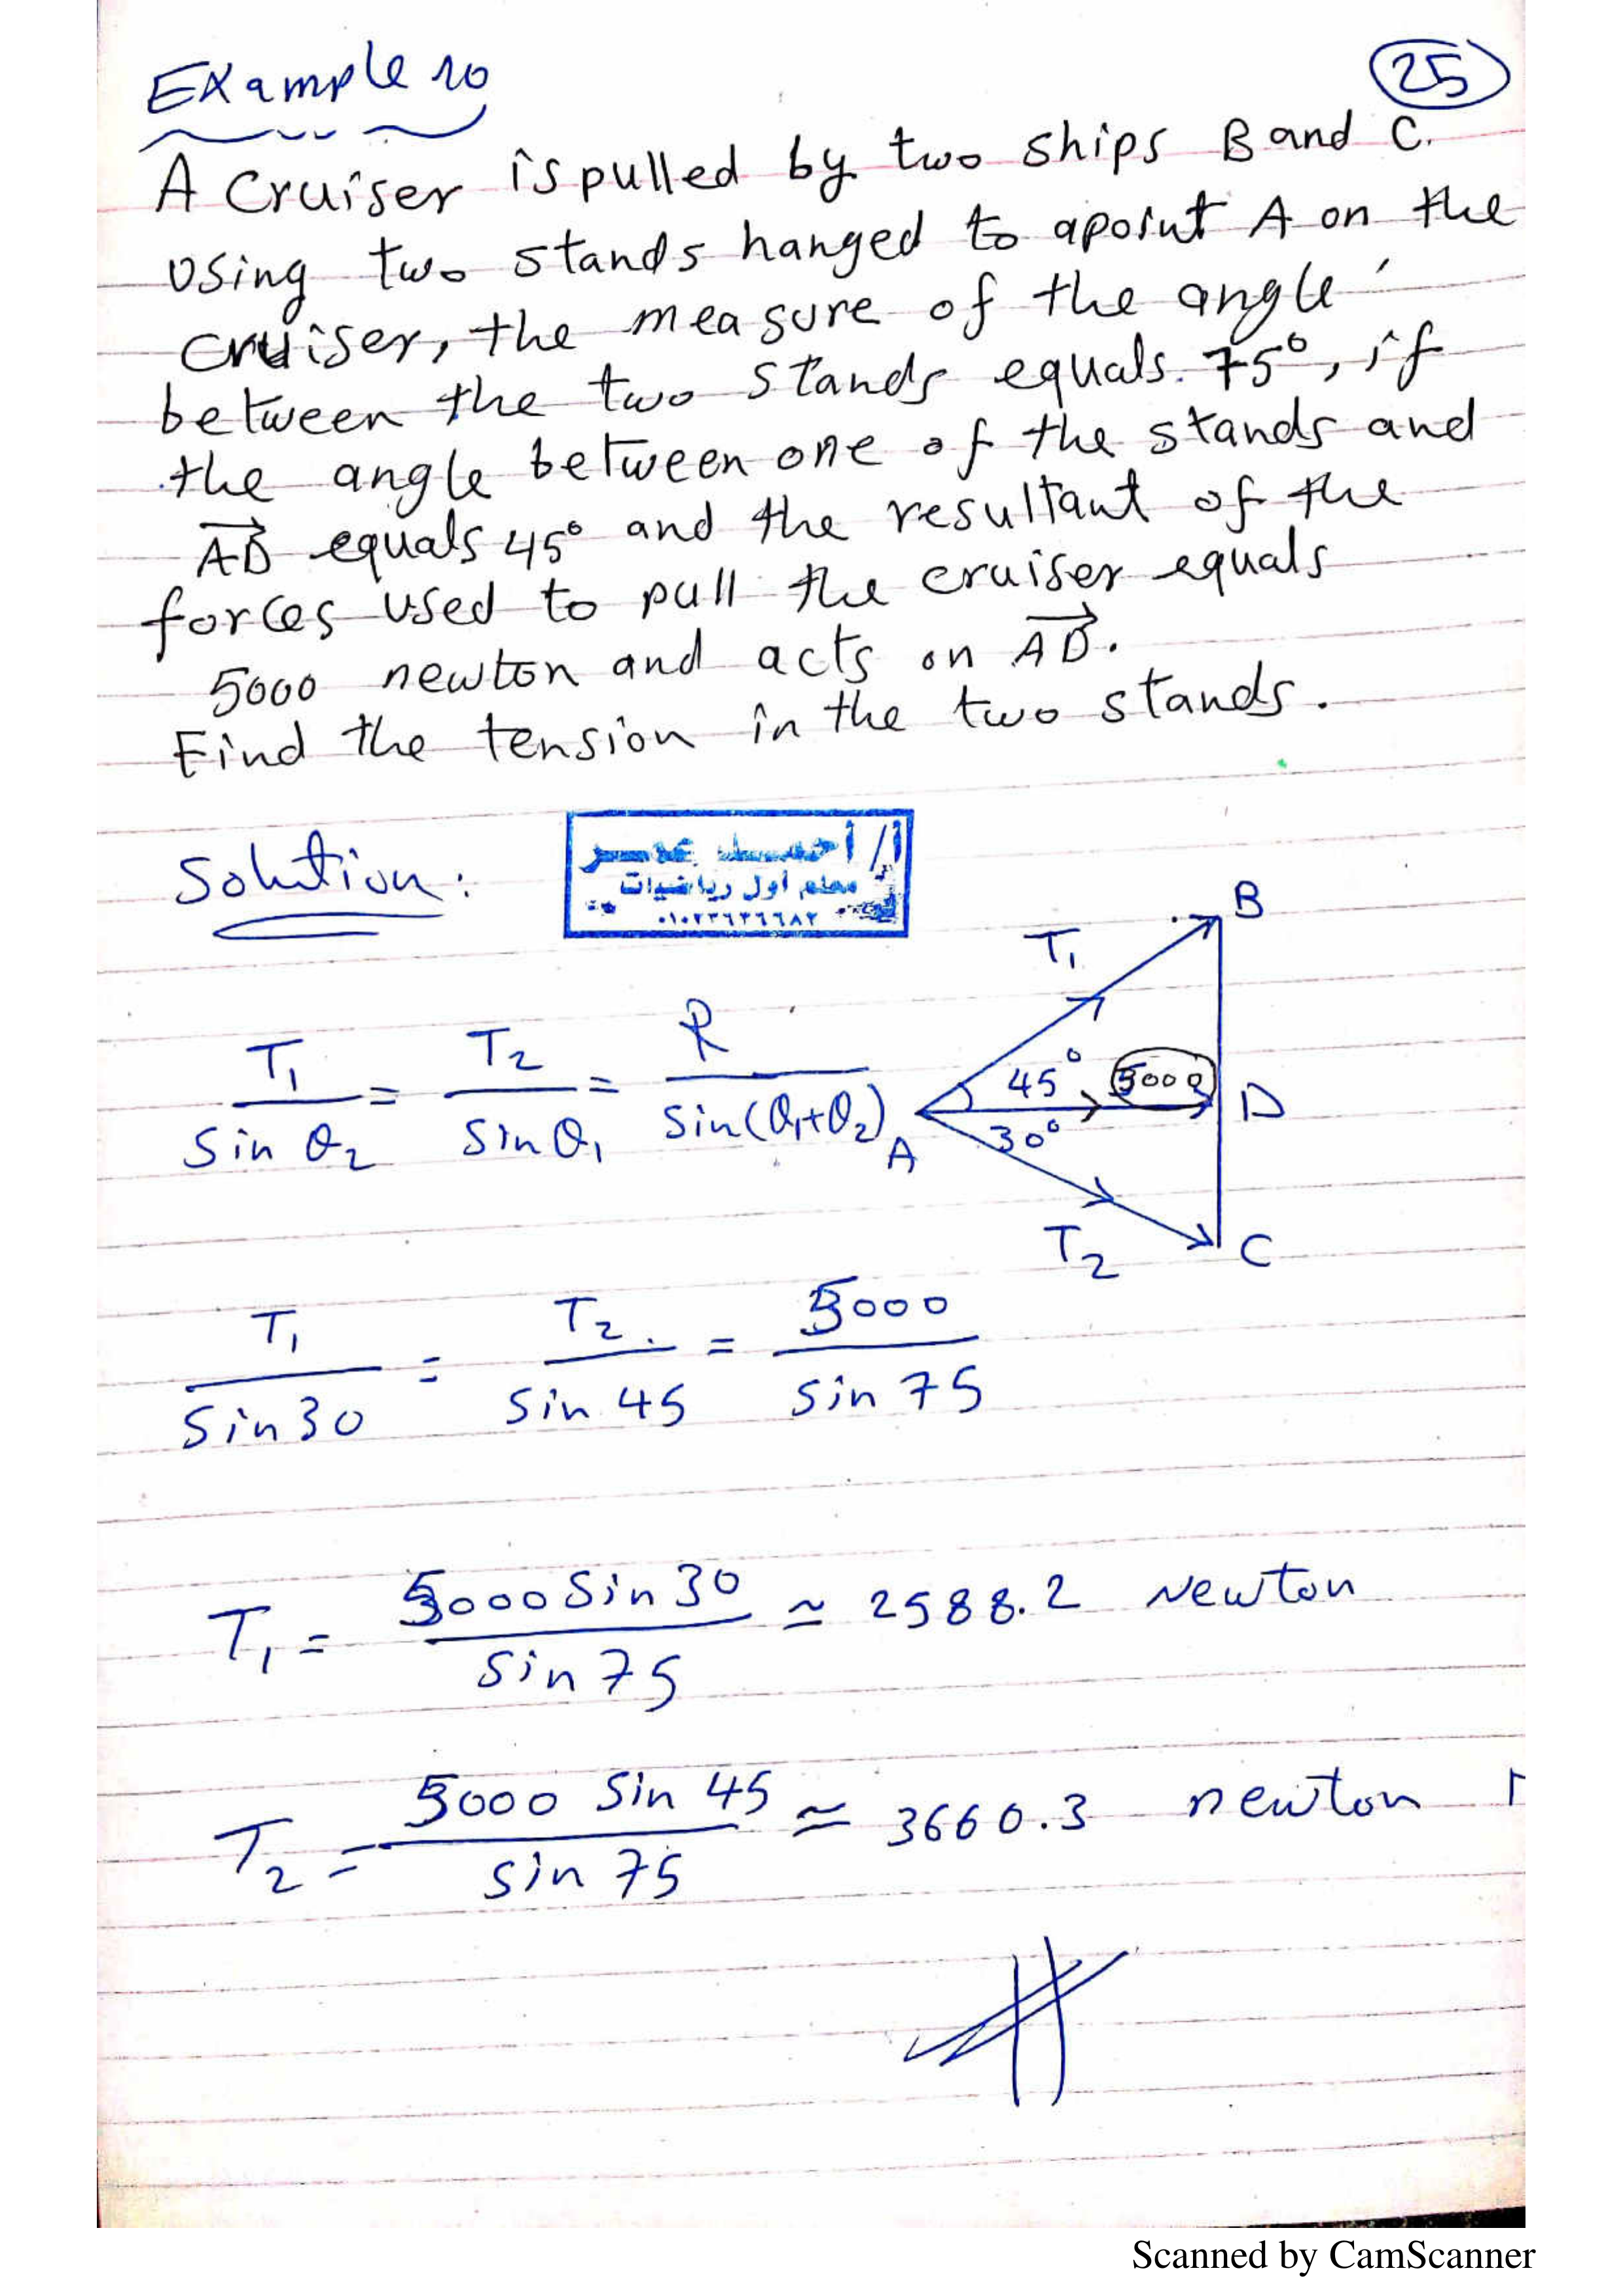 Example 10
25
A Cruiser is pulled by two ships B and C.
Using two stands hanged to apoint A on the
cruiser, the measure of the angle
between the two stands equals. 75°, if
the angle between one of the stands and
AD equals 45° and the resultant of the
forces used to pull the cruiser equals
5000 newton and acts on AD.
Find the tension in the two stands.
Solution:
أ/ أحمد عمر
معلم أول رياضيات
B
T1
T1 / Sin θ2 = T2 / Sin θ1 = R / Sin(θ1+θ2)
45° 5000 D
A 30°
T2 C
T1 / Sin 30 = T2 / Sin 45 = 5000 / Sin 75
T1 = 5000 Sin 30 / Sin 75 ≃ 2588.2 Newton
T2 = 5000 Sin 45 / Sin 75 ≃ 3660.3 newton
Scanned by CamScanner